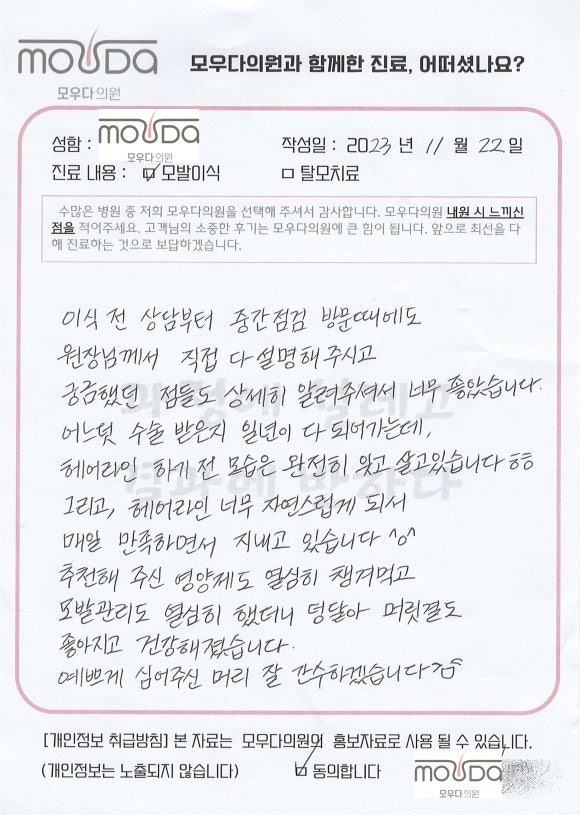 MOUDA
모우다의원
모우다의원과 함께한 진료, 어떠셨나요?
성함 : MOUDA 모우다의원
작성일 : 2023 년 11 월 22 일
진료 내용 : ☑ 모발이식 □ 탈모치료
수많은 병원 중 저희 모우다의원을 선택해 주셔서 감사합니다. 모우다의원 내원 시 느끼신
점을 적어주세요. 고객님의 소중한 후기는 모우다의원에 큰 힘이 됩니다. 앞으로 최선을 다
해 진료하는 것으로 보답하겠습니다.
이식 전 상담부터 중간점검 방문때에도
원장님께서 직접 다 설명해 주시고
궁금했던 점들도 상세히 알려주셔서 너무 좋았습니다.
어느덧 수술 받은지 일년이 다 되어가는데,
헤어라인 하기 전 모습은 완전히 잊고 살고있습니다 ㅎㅎ
그리고, 헤어라인 너무 자연스럽게 되서
매일 만족하면서 지내고 있습니다 ^o^
추천해 주신 영양제도 열심히 챙겨먹고
모발관리도 열심히 했더니 덩달아 머릿결도
좋아지고 건강해졌습니다.
예쁘게 심어주신 머리 잘 간수하겠습니다
[개인정보 취급방침] 본 자료는 모우다의원의 홍보자료로 사용 될 수 있습니다.
(개인정보는 노출되지 않습니다) ☑ 동의합니다
MOUDA
모우다의원